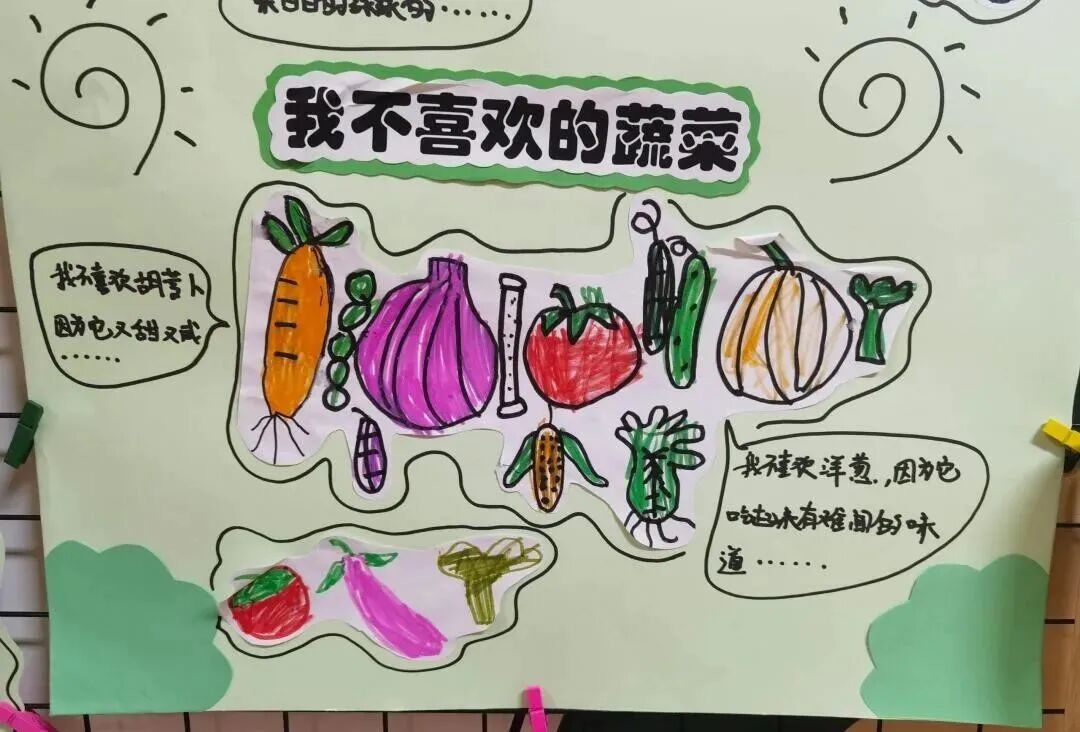 的……
我不喜欢的蔬菜
我不喜欢胡萝卜
因为它又甜又咸
……
我不喜欢洋葱,因为它
吃起来有难闻的味
道……